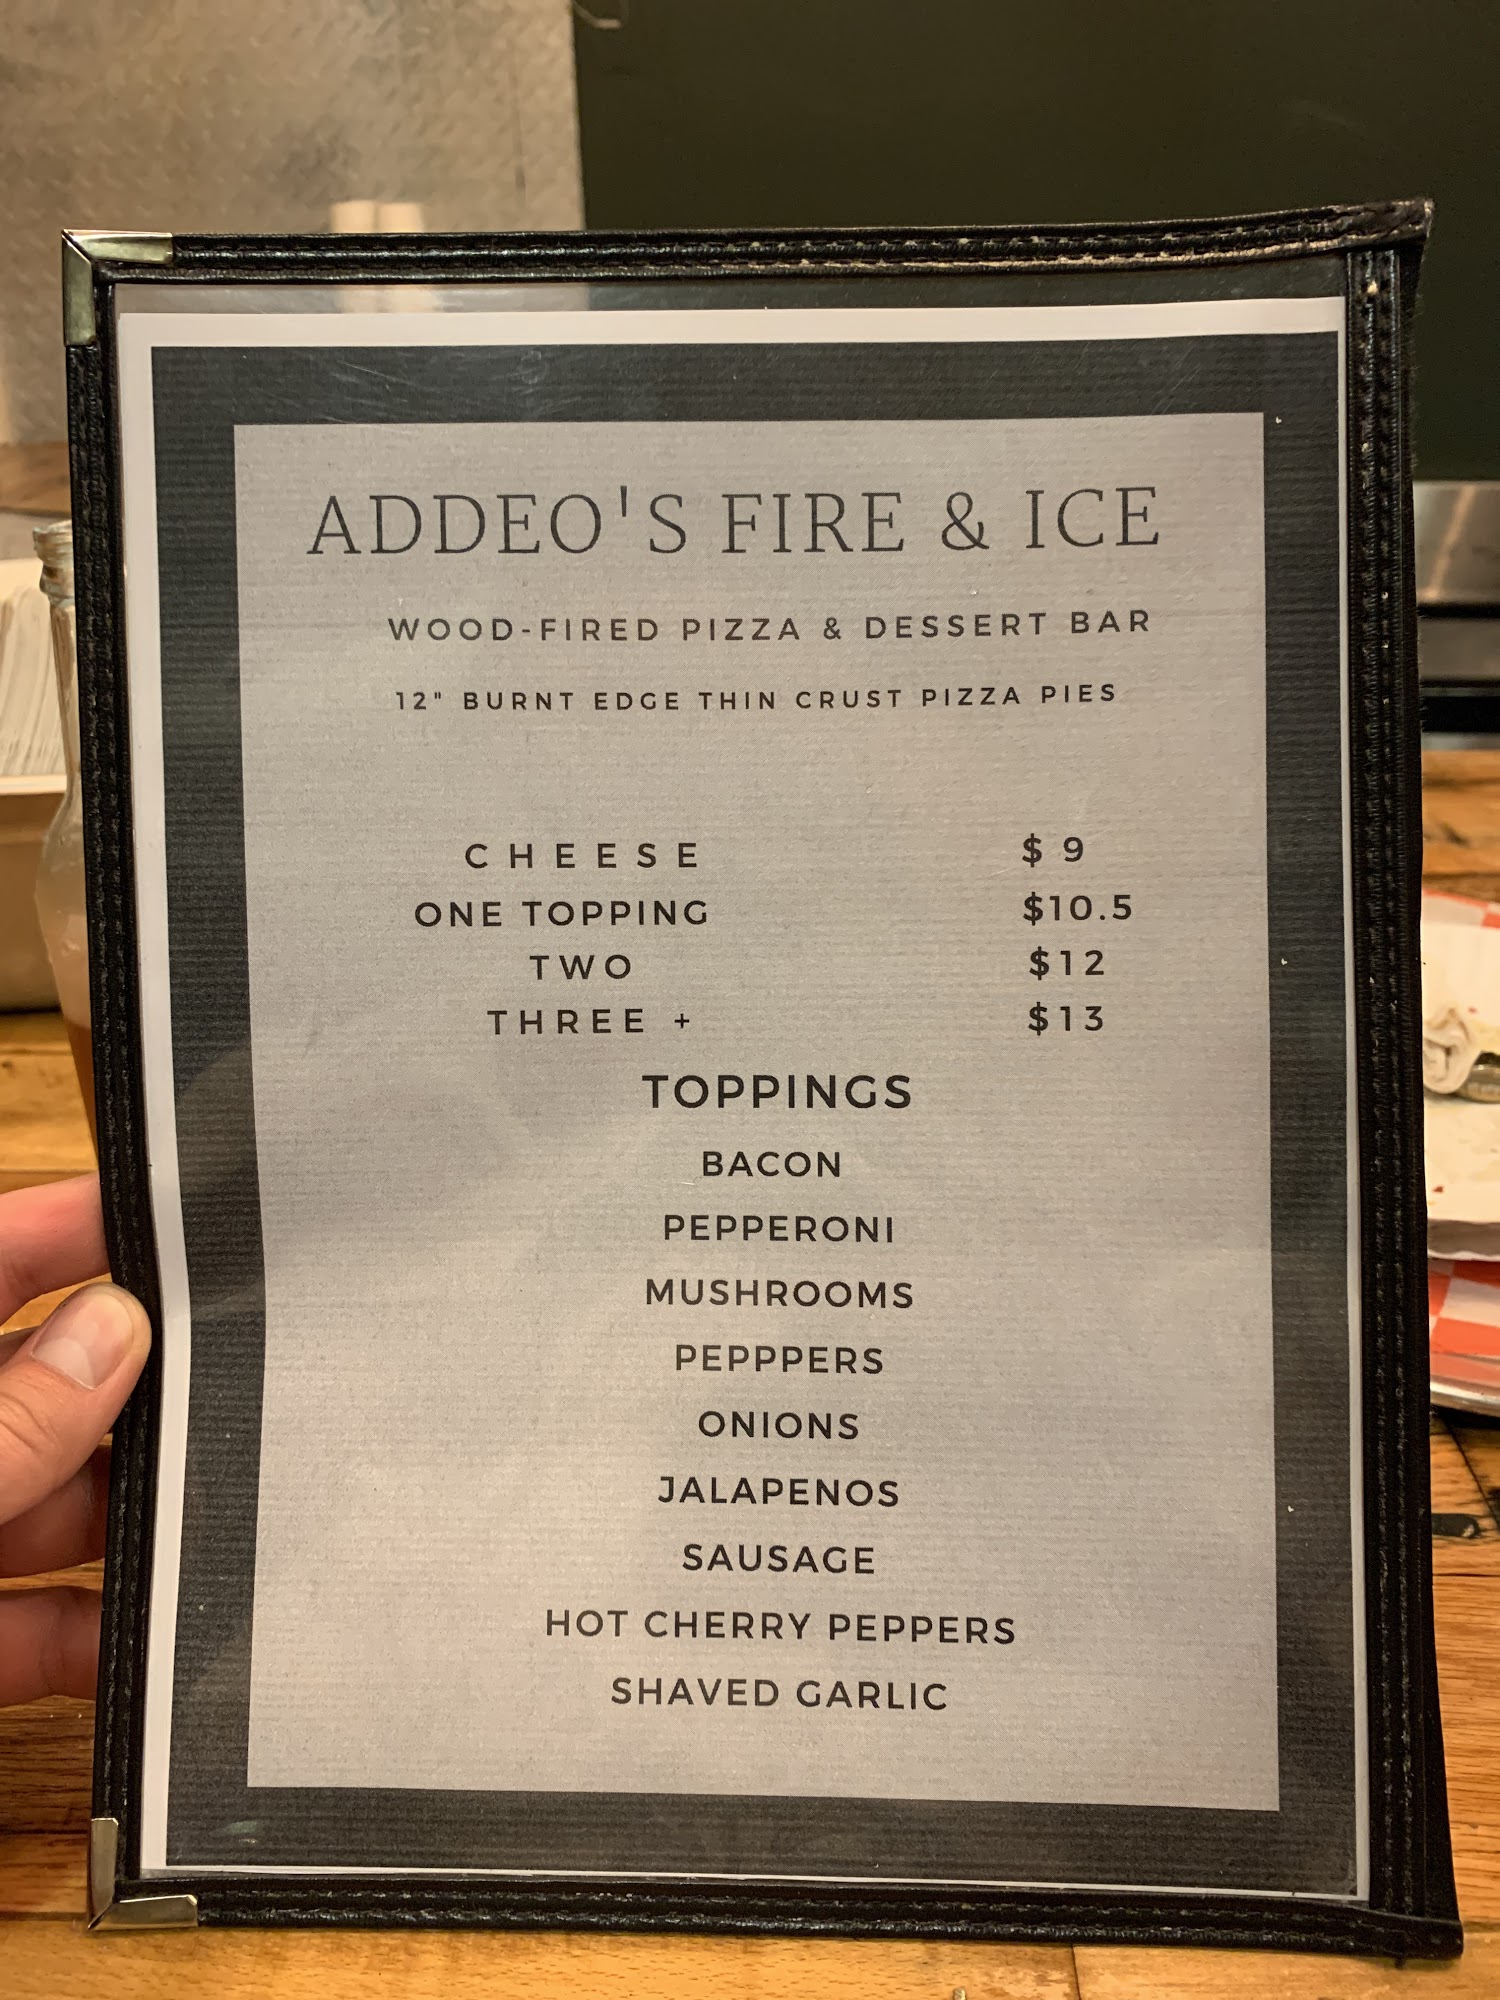 ADDEO'S FIRE & ICE
WOOD-FIRED PIZZA & DESSERT BAR
12" BURNT EDGE THIN CRUST PIZZA PIES
CHEESE $ 9
ONE TOPPING $10.5
TWO $12
THREE + $13
TOPPINGS
BACON
PEPPERONI
MUSHROOMS
PEPPPERS
ONIONS
JALAPENOS
SAUSAGE
HOT CHERRY PEPPERS
SHAVED GARLIC